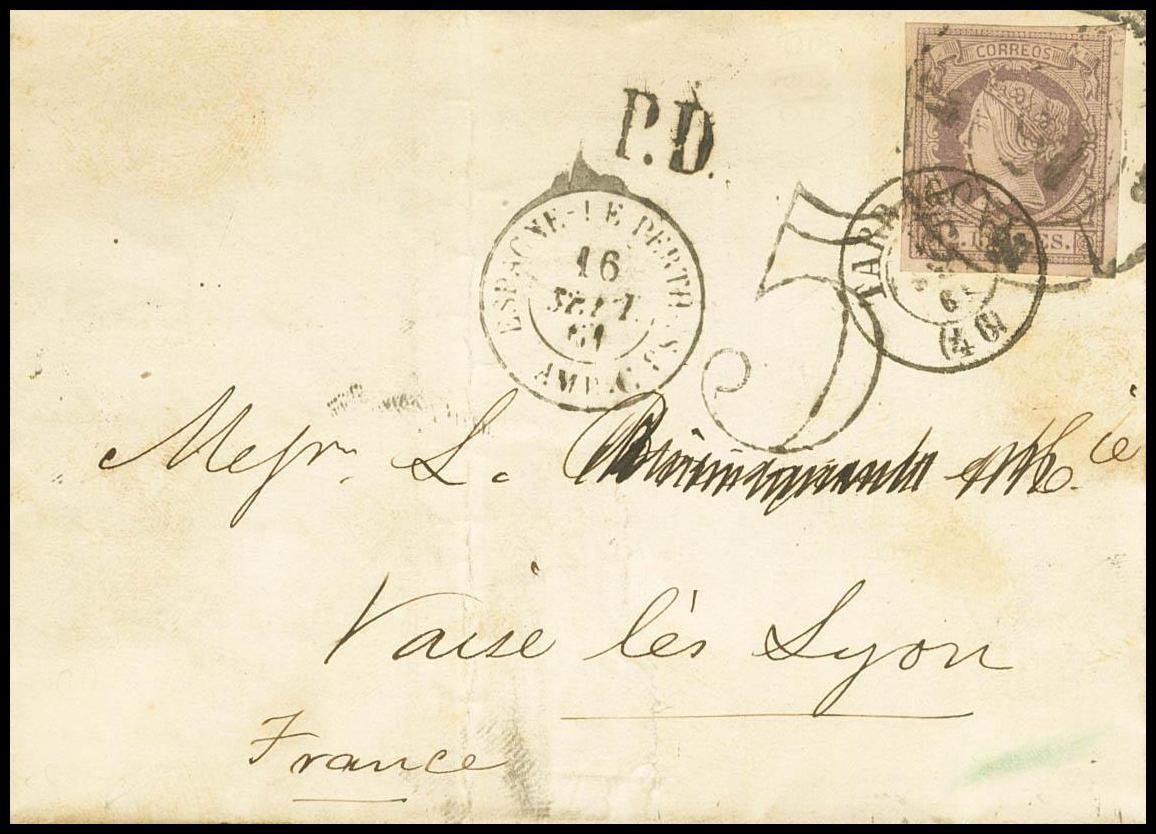 CORREOS
P.D.
ESPAGNE-LE PERTHUS
16
SEPT
61
AMB.C.
TARRAGONA
61
(46)
5
Messrs. L. & Cie
Vaise lès Lyon
France